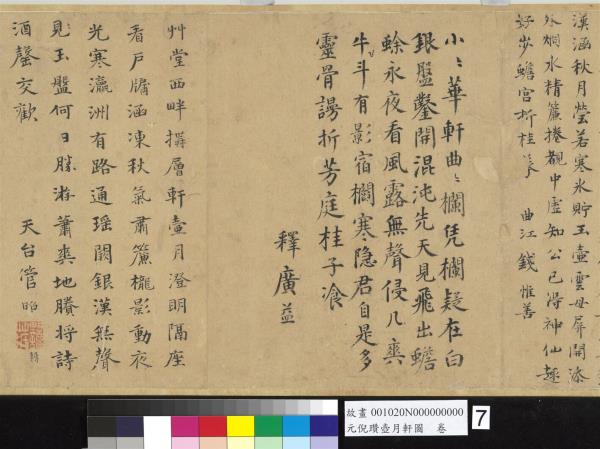 漢涵秋月瑩若寒氷貯玉壺雲母屏開添
外烱水精簾捲覯中虛知公已得神仙趣
好步蟾宮折桂
曲江錢惟善
小〻華軒曲〻欄凭欄疑在白
銀盤鑿開混沌先天見飛出蟾
蜍永夜看風露無聲侵几奭
牛斗有影宿欄寒隐君自是多
靈骨謾折芳庭桂子湌
釋廣益
艸堂西畔搆層軒壺月澄明隔座
看戶牖涵凍秋氣肅簾櫳影動夜
光寒瀛洲有路通瑶闕銀漢無聲
見玉盤何日勝游蕭爽地賸將詩
酒罄交歡
天台管
故畫 001020N000000000
元倪瓚壺月軒圖 卷
7